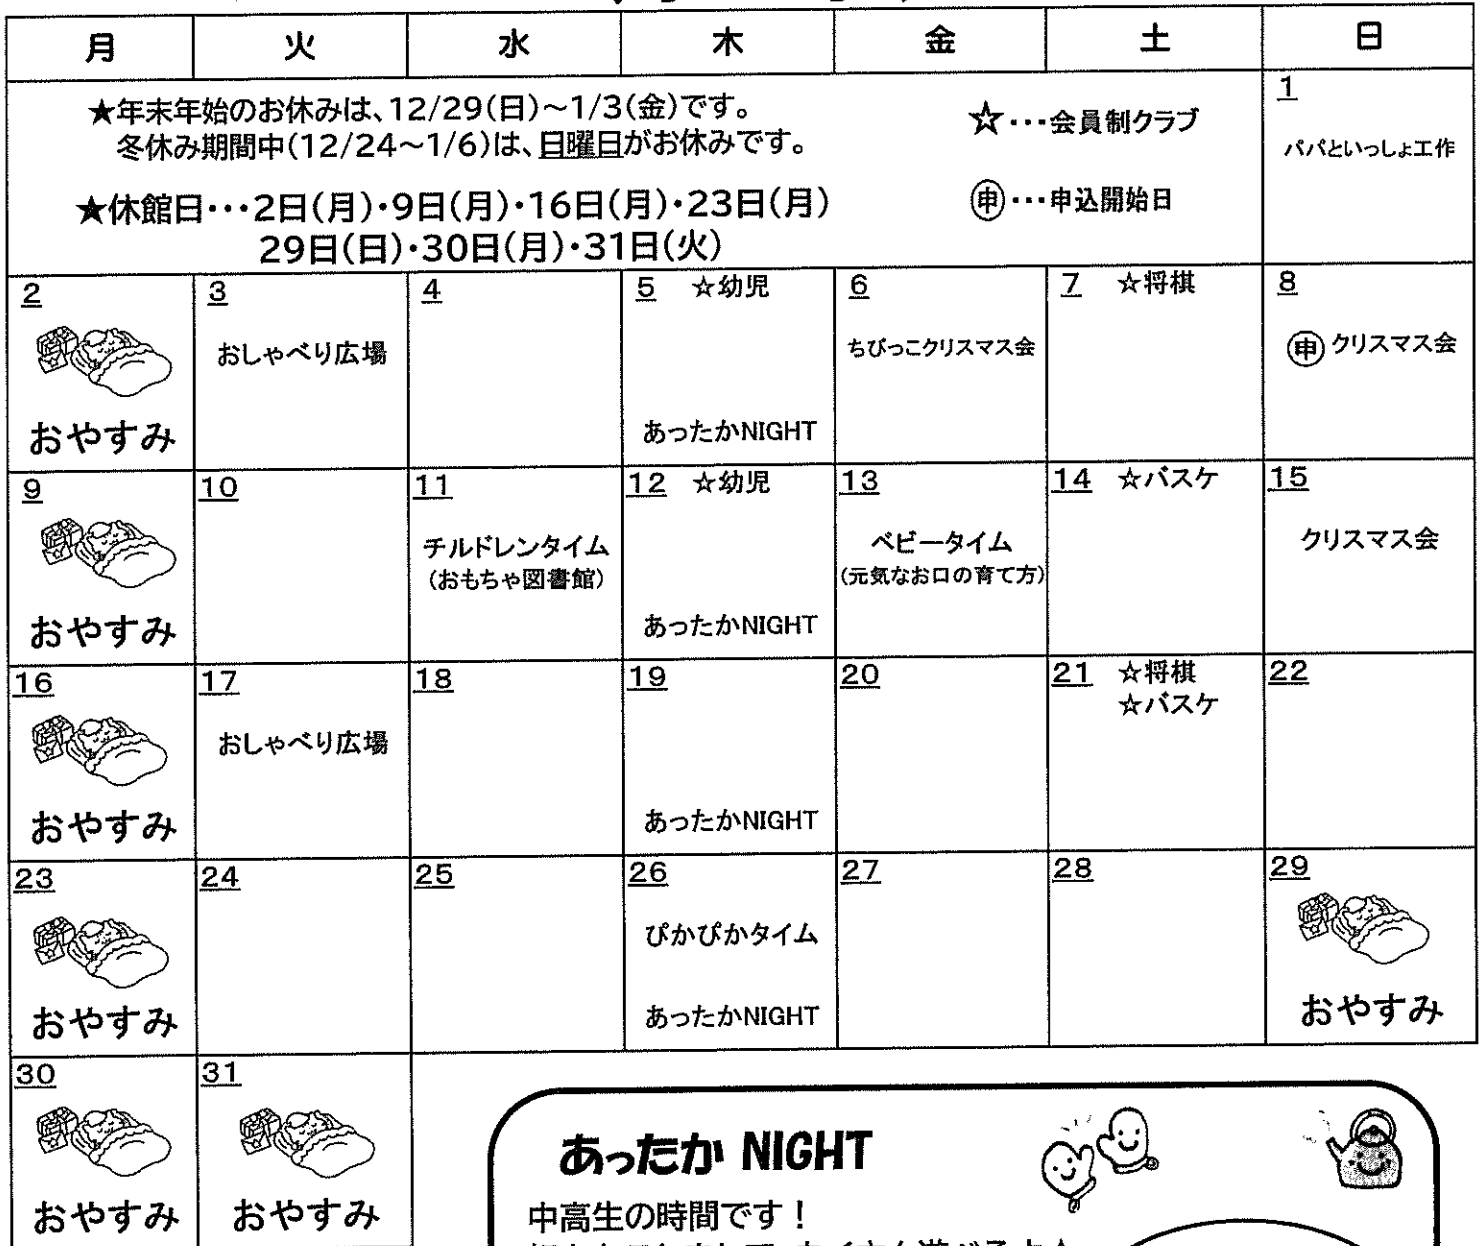 月 火 水 木 金 土 日
★年末年始のお休みは、12/29(日)～1/3(金)です。
冬休み期間中(12/24～1/6)は、日曜日がお休みです。
★休館日･･･2日(月)･9日(月)･16日(月)･23日(月)
29日(日)･30日(月)･31日(火)
☆･･･会員制クラブ
㊥･･･申込開始日
1
パパといっしょ工作
2
おやすみ
3
おしゃべり広場
4
5 ☆幼児
あったかNIGHT
6
ちびっこクリスマス会
7 ☆将棋
8
㊥クリスマス会
9
おやすみ
10
11
チルドレンタイム
(おもちゃ図書館)
12 ☆幼児
あったかNIGHT
13
ベビータイム
(元気なお口の育て方)
14 ☆バスケ
15
クリスマス会
16
おやすみ
17
おしゃべり広場
18
19
あったかNIGHT
20
21 ☆将棋
☆バスケ
22
23
おやすみ
24
25
26
ぴかぴかタイム
あったかNIGHT
27
28
29
おやすみ
30
おやすみ
31
おやすみ
あったか NIGHT
中高生の時間です！